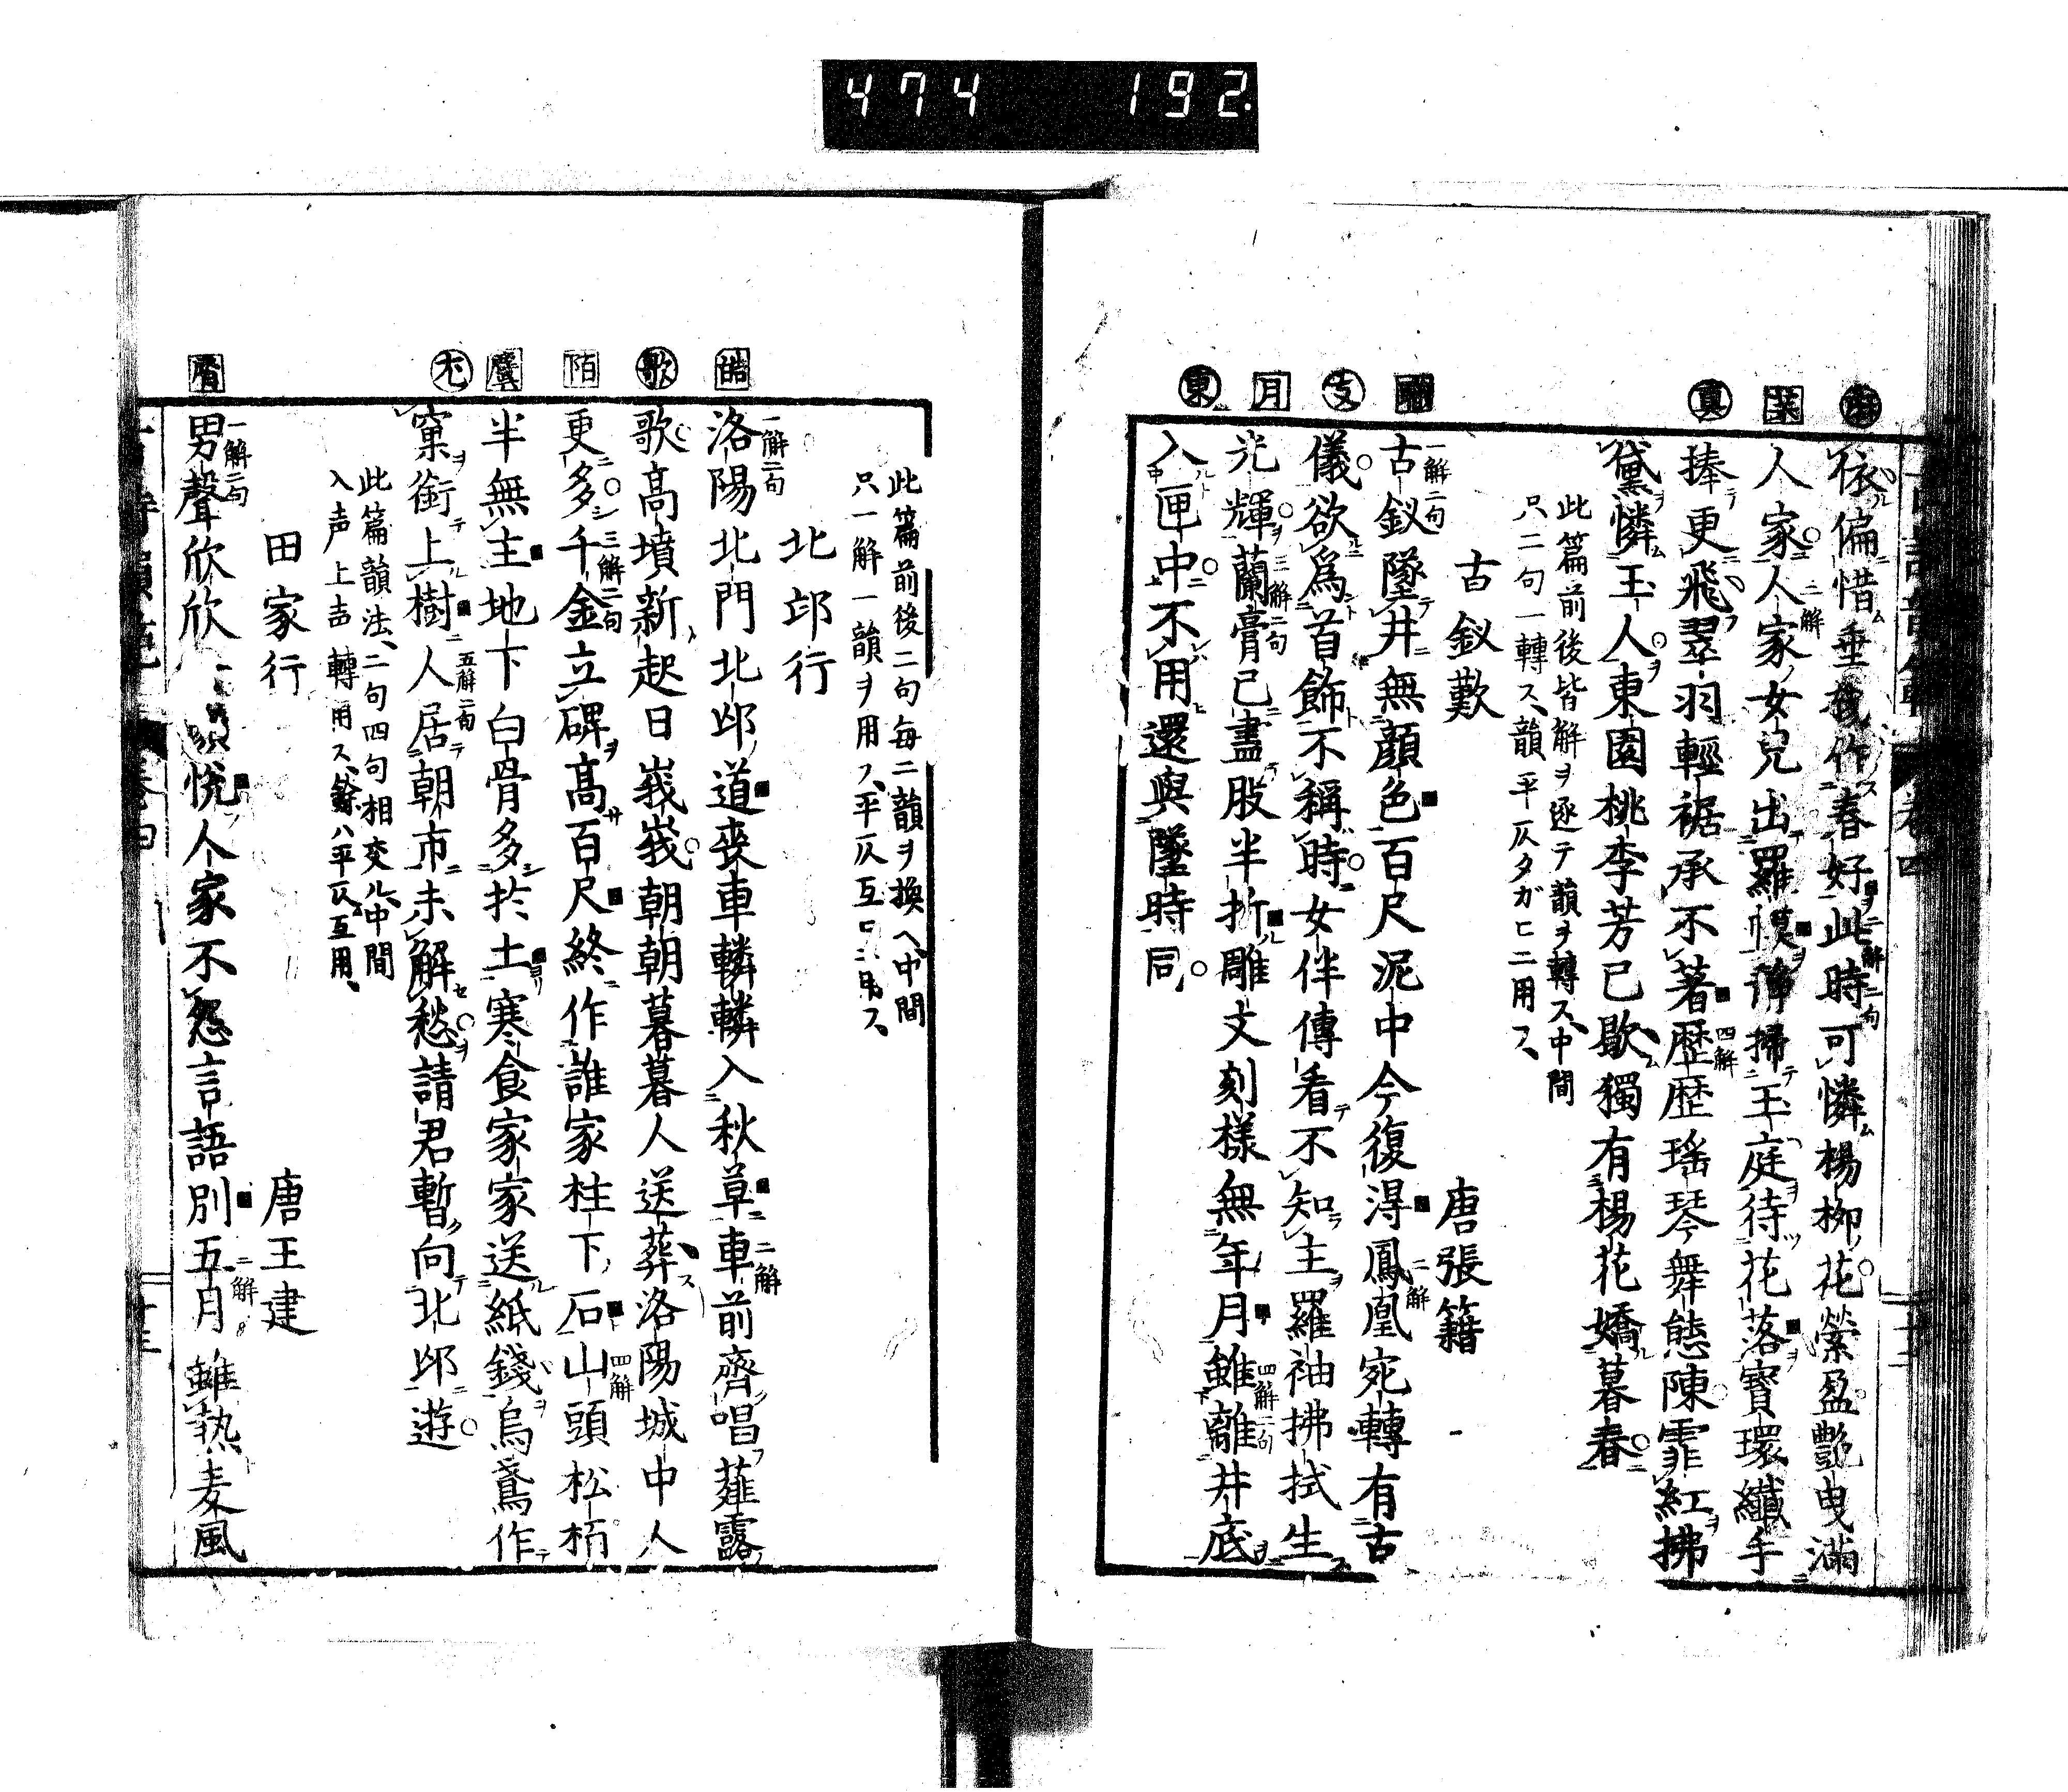 474 192
依偏惜垂枝作春好此時可憐楊柳花縈盈艷曳滿
人家人家女兒出羅幙淨掃玉庭待花落寶環纖手
捧更飛翠羽輕裾承不著歷歷瑤琴舞態陳霏紅拂
黛憐玉人東園桃李芳已歇獨有楊花嬌暮春
此篇前後皆解ヲ逐テ韻ヲ轉ス、中間
只二句一轉ス、韻平仄タガヒニ用フ、
古釵歎 唐張籍
古釵墜井無顏色百尺泥中今復得鳳凰宛轉有古
儀欲爲首飾不稱時女伴傳看不知主羅袖拂拭生
光輝蘭膏已盡股半折雕文刻樣無年月雖離井底
入匣中不用還與墜時同
此篇前後二句毎ニ韻ヲ換ヘ、中間
只一解一韻ヲ用フ、平仄互ニ用ス、
北邙行
洛陽北門北邙道喪車轔轔入秋草車前齊唱薤露
歌高墳新起日峩峩朝朝暮暮人送葬洛陽城中人
更多千金立碑高百尺終作誰家柱下石山頭松栢
半無主地下白骨多於土寒食家家送紙錢烏鳶作
窠銜上樹人居朝市未解愁請君暫向北邙遊
此篇韻法、二句四句相交ル、中間
入声上声轉用ス、餘ハ平仄互用、
田家行 唐王建
男聲欣欣 悅人家不怨言語別五月雖熱麦風